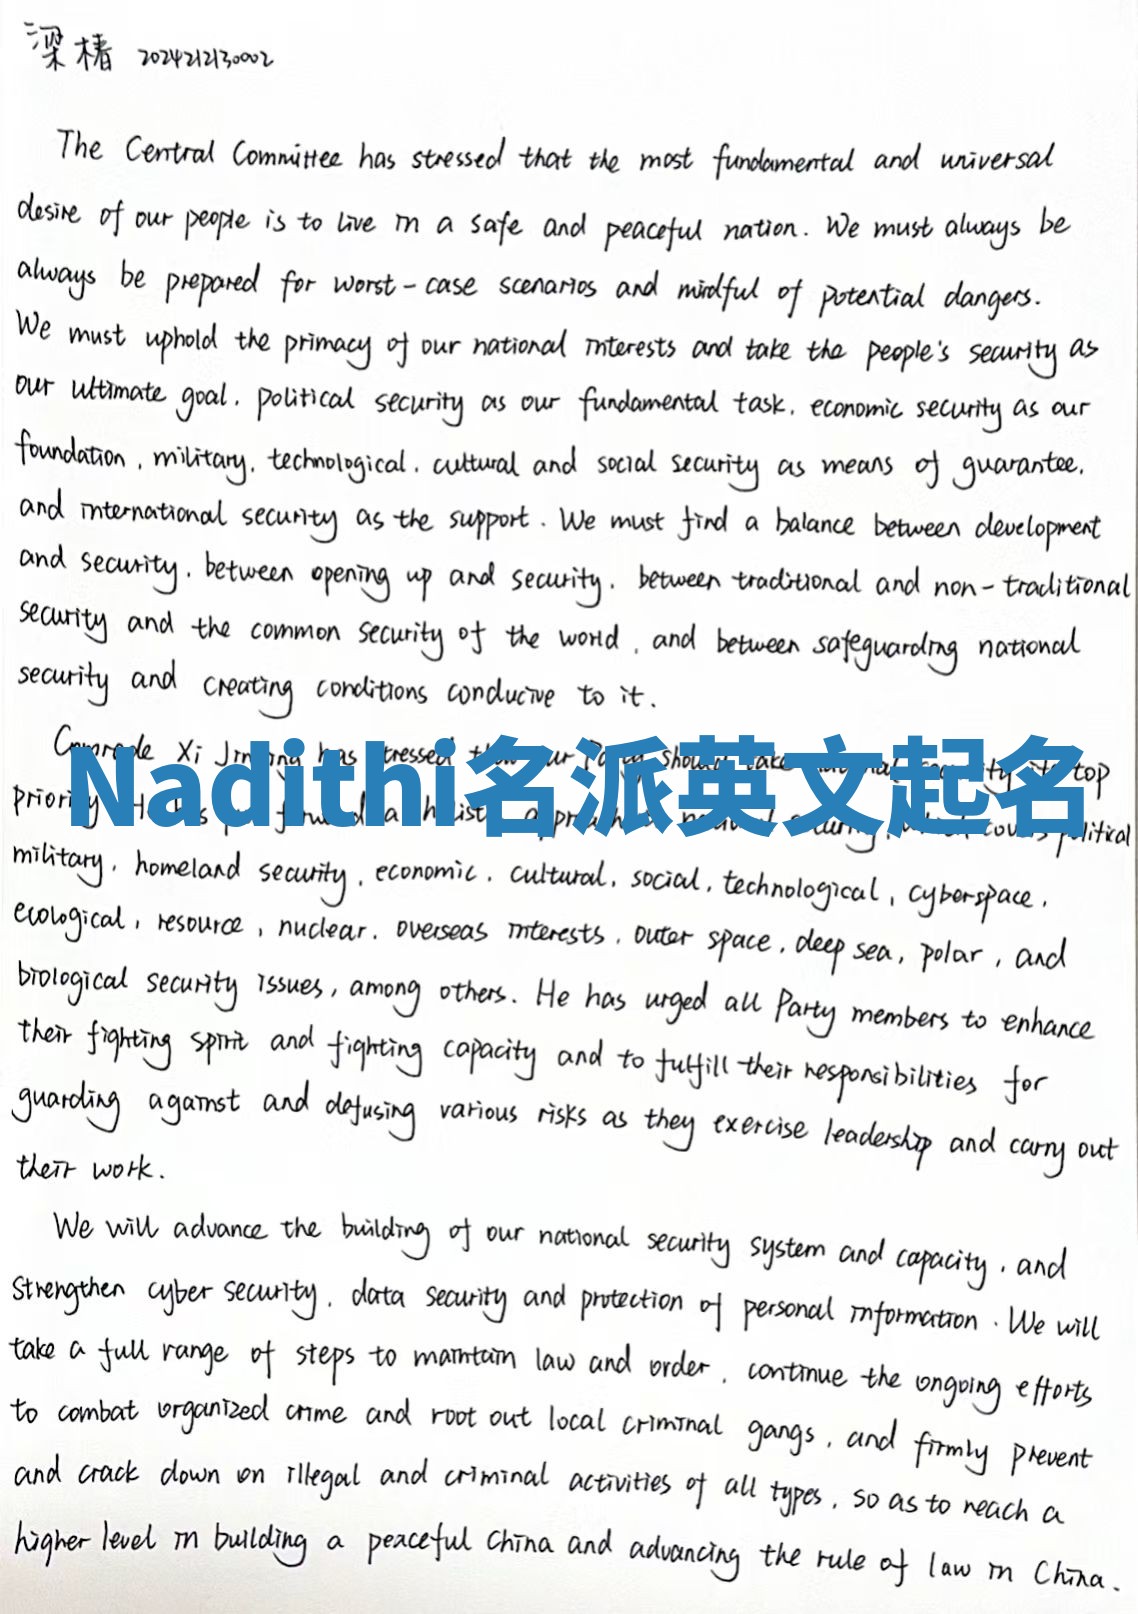 梁椿 2024212130002
The Central Committee has stressed that the most fundamental and universal
desire of our people is to live in a safe and peaceful nation. We must always be
always be prepared for worst-case scenarios and mindful of potential dangers.
We must uphold the primacy of our national interests and take the people's security as
our ultimate goal, political security as our fundamental task, economic security as our
foundation, military, technological, cultural and social security as means of guarantee,
and international security as the support. We must find a balance between development
and security, between opening up and security, between traditional and non-traditional
security and the common security of the world, and between safeguarding national
security and creating conditions conducive to it.
Comrade Xi Jinping has stressed our Party should take top
priority
Nadithi名派英文起名
covers political
military, homeland security, economic, cultural, social, technological, cyberspace,
ecological, resource, nuclear, overseas interests, outer space, deep sea, polar, and
biological security issues, among others. He has urged all Party members to enhance
their fighting spirit and fighting capacity and to fulfill their responsibilities for
guarding against and defusing various risks as they exercise leadership and carry out
their work.
We will advance the building of our national security system and capacity, and
strengthen cyber security, data security and protection of personal information. We will
take a full range of steps to maintain law and order, continue the ongoing efforts
to combat organized crime and root out local criminal gangs, and firmly prevent
and crack down on illegal and criminal activities of all types, so as to reach a
higher level in building a peaceful China and advancing the rule of law in China.